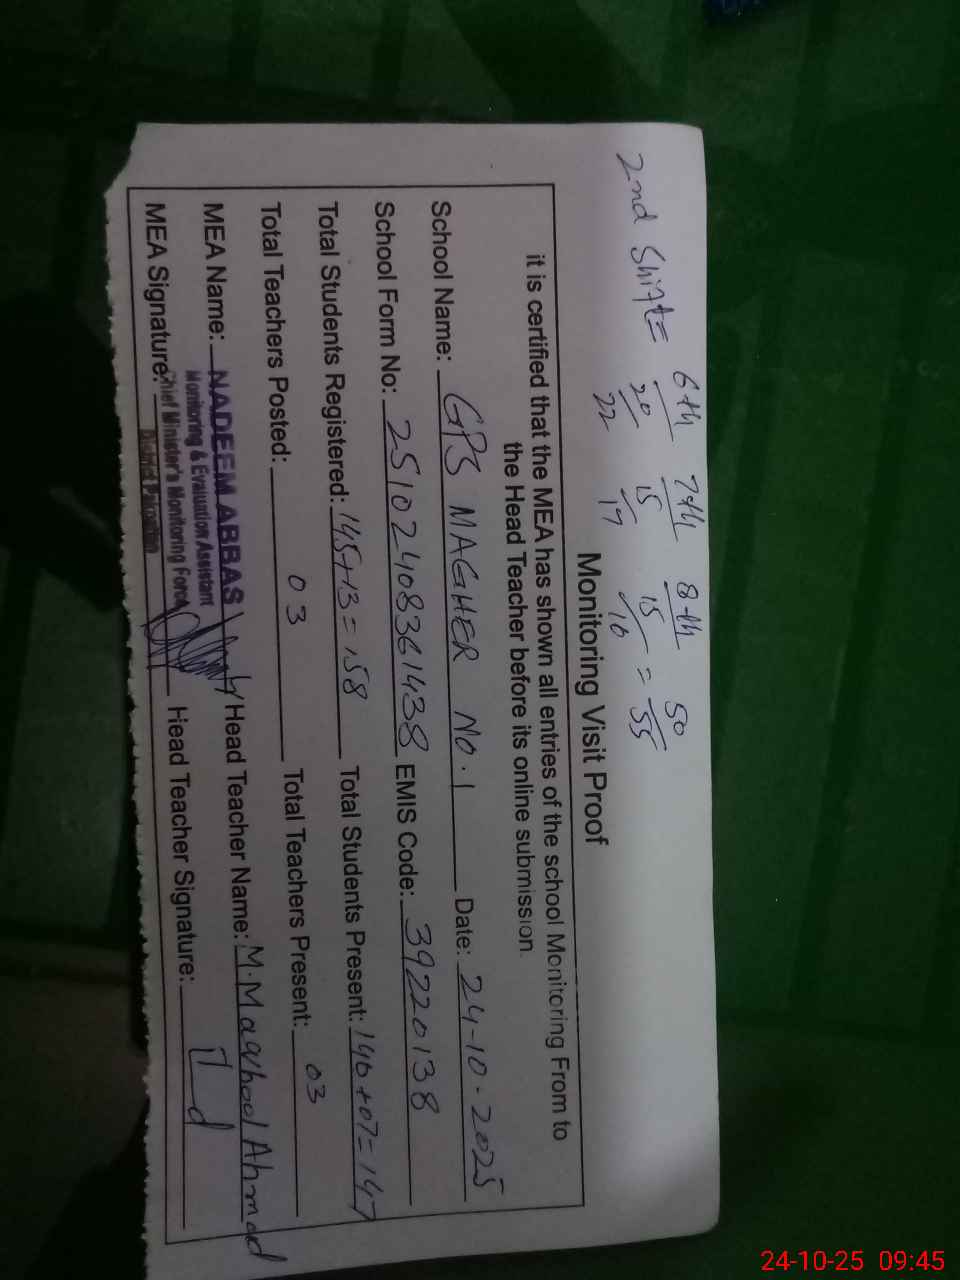 6th 7th 8th 50
2nd Shift= 20/22 15/17 15/16 = 55
Monitoring Visit Proof
it is certified that the MEA has shown all entries of the school Monitoring From to
the Head Teacher before its online submission.
School Name: GPS MAGHER NO.1 Date: 24-10-2025
School Form No: 25102408361438 EMIS Code: 39220138
Total Students Registered: 145+13=158 Total Students Present: 140+07=147
Total Teachers Posted: 03 Total Teachers Present: 03
MEA Name: NADEEM ABBAS Head Teacher Name: M.Maqbool Ahmad
Monitoring & Evaluation Assistant
Chief Minister's Monitoring Force
MEA Signature: Head Teacher Signature:
District
24-10-25 09:45